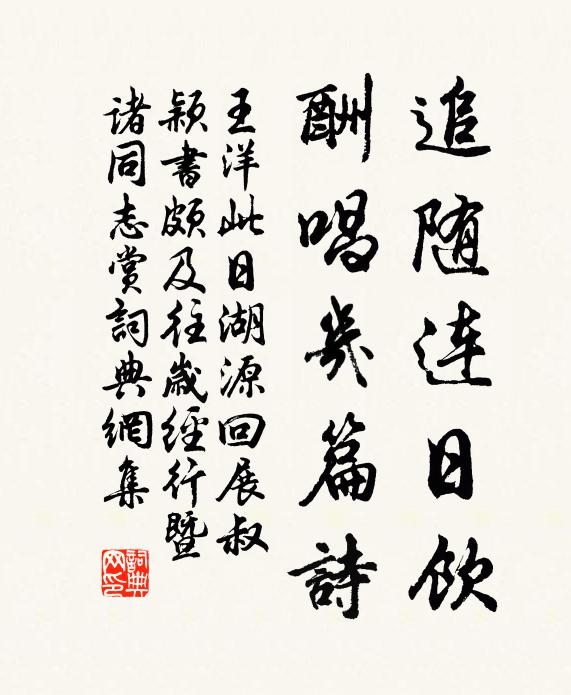 追随连日饮
酬唱几篇詩
王洋此日湖源回展叔
颖書頗及往歲經行暨
诸同志赏詞典網集
詞典网印